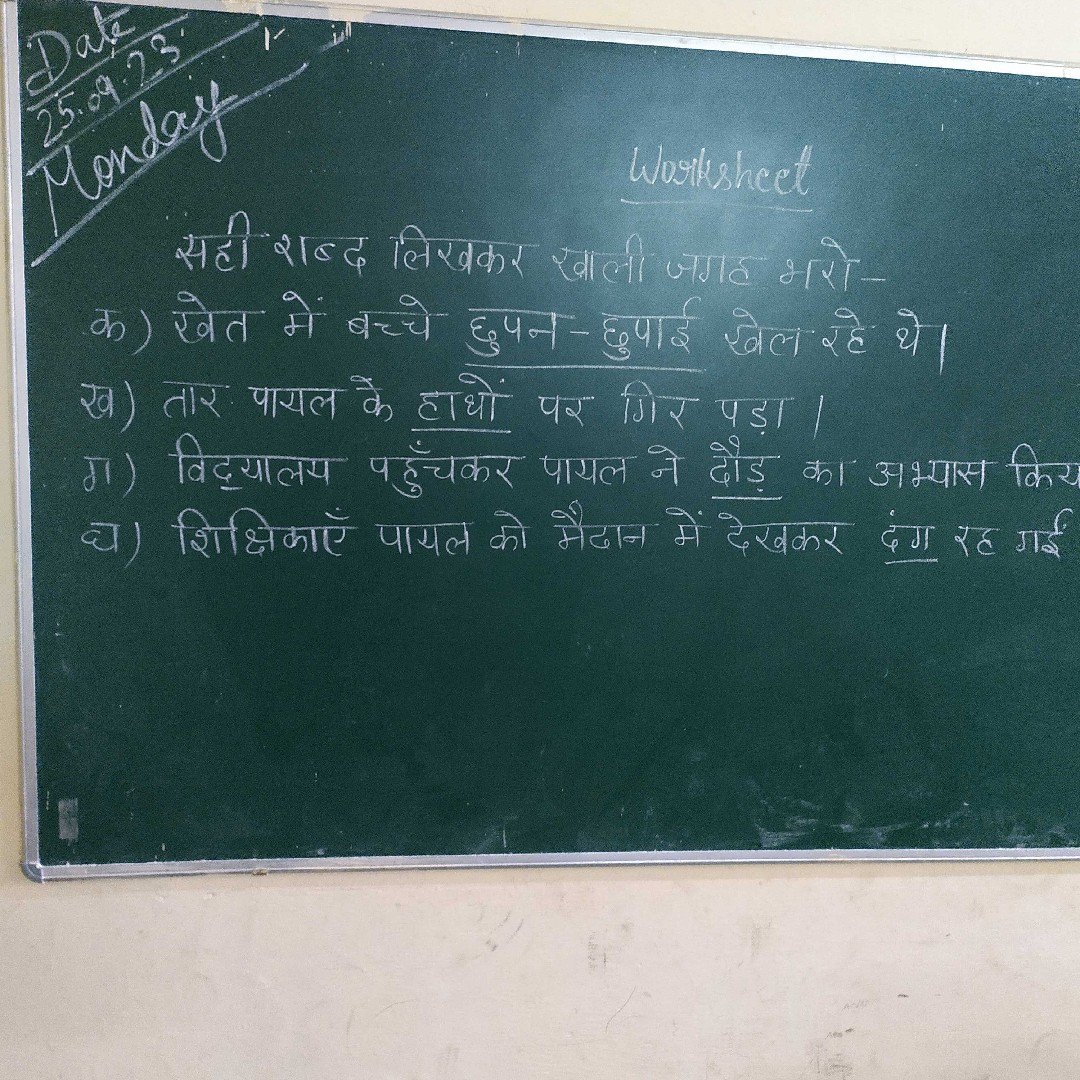 Date
25.09.23
Monday
Worksheet
सही शब्द लिखकर खाली जगह भरो-
क) खेत में बच्चे छुपन-छुपाई खेल रहे थे।
ख) तार पायल के हाथों पर गिर पड़ा।
ग) विद्यालय पहुँचकर पायल ने दौड़ का अभ्यास किय
घ) शिक्षिकाएँ पायल को मैदान में देखकर दंग रह गईं